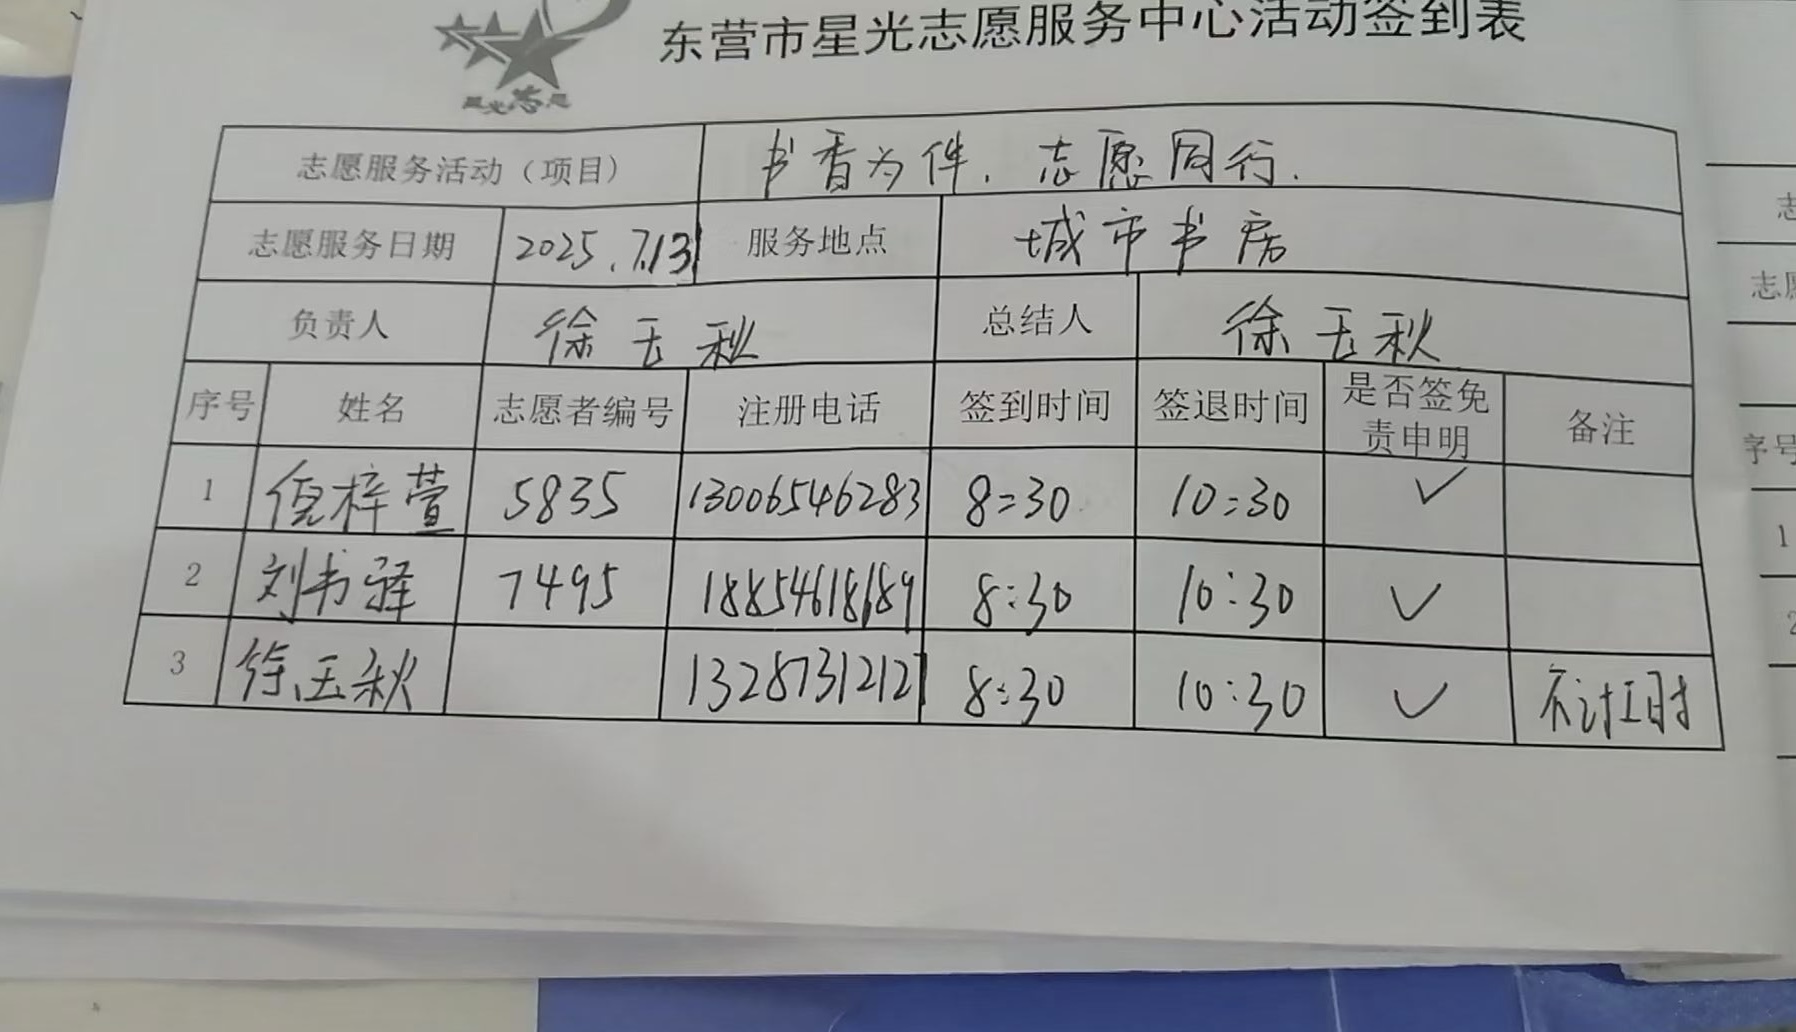 东营市星光志愿服务中心活动签到表
星光志愿
志愿服务活动（项目） 书香为伴、志愿同行.
志愿服务日期 2025.7.13 服务地点 城市书房
负责人 徐玉秋 总结人 徐玉秋
序号 姓名 志愿者编号 注册电话 签到时间 签退时间 是否签免责申明 备注
1 倪梓萱 5835 13006546283 8:30 10:30 ✓
2 刘书驿 7495 18854618189 8:30 10:30 ✓
3 徐玉秋 13287312127 8:30 10:30 ✓ 不计工时
志
志愿
序号
1
2